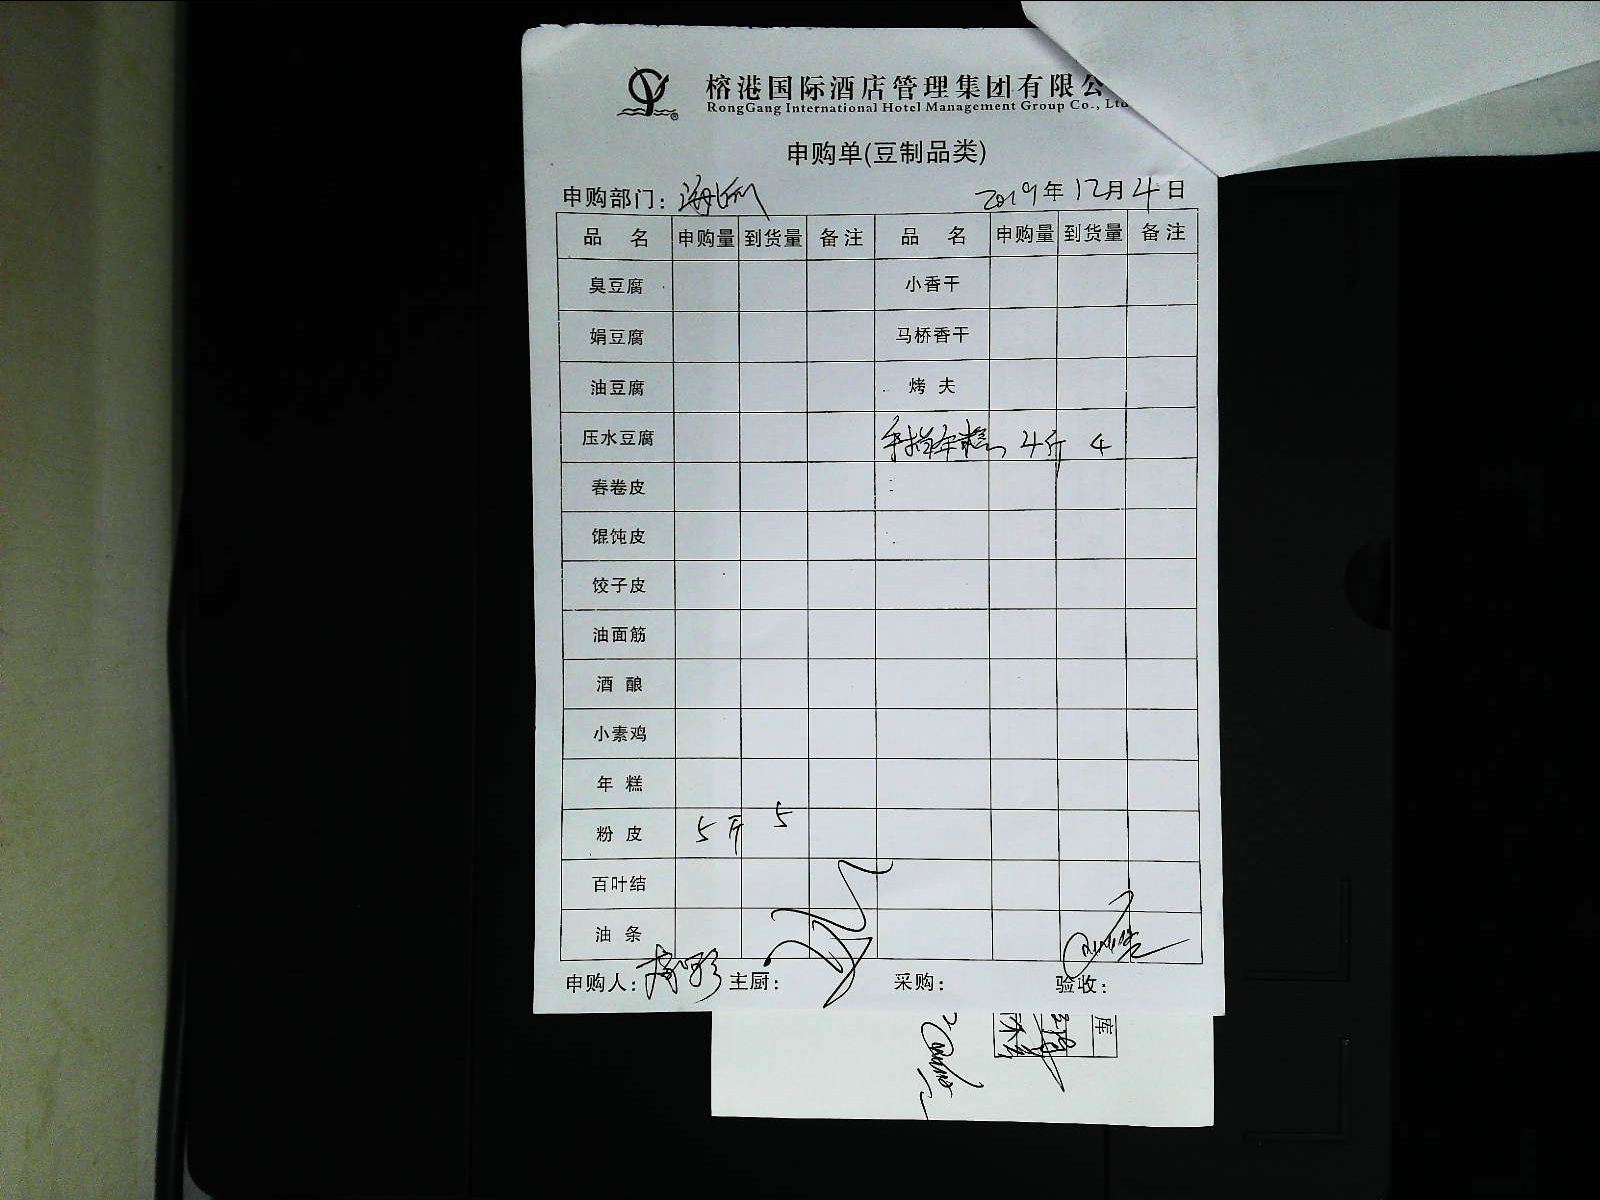 榕港国际酒店管理集团有限公
RongGang International Hotel Management Group Co., Ltd
申购单(豆制品类)
申购部门: 2019年12月4日
品名 申购量 到货量 备注 品名 申购量 到货量 备注
臭豆腐 小香干
娟豆腐 马桥香干
油豆腐 烤夫
压水豆腐 手指年糕 4斤 4
春卷皮
馄饨皮
饺子皮
油面筋
酒酿
小素鸡
年糕
粉皮 5斤 5
百叶结
油条
申购人: 主厨: 采购: 验收:
库